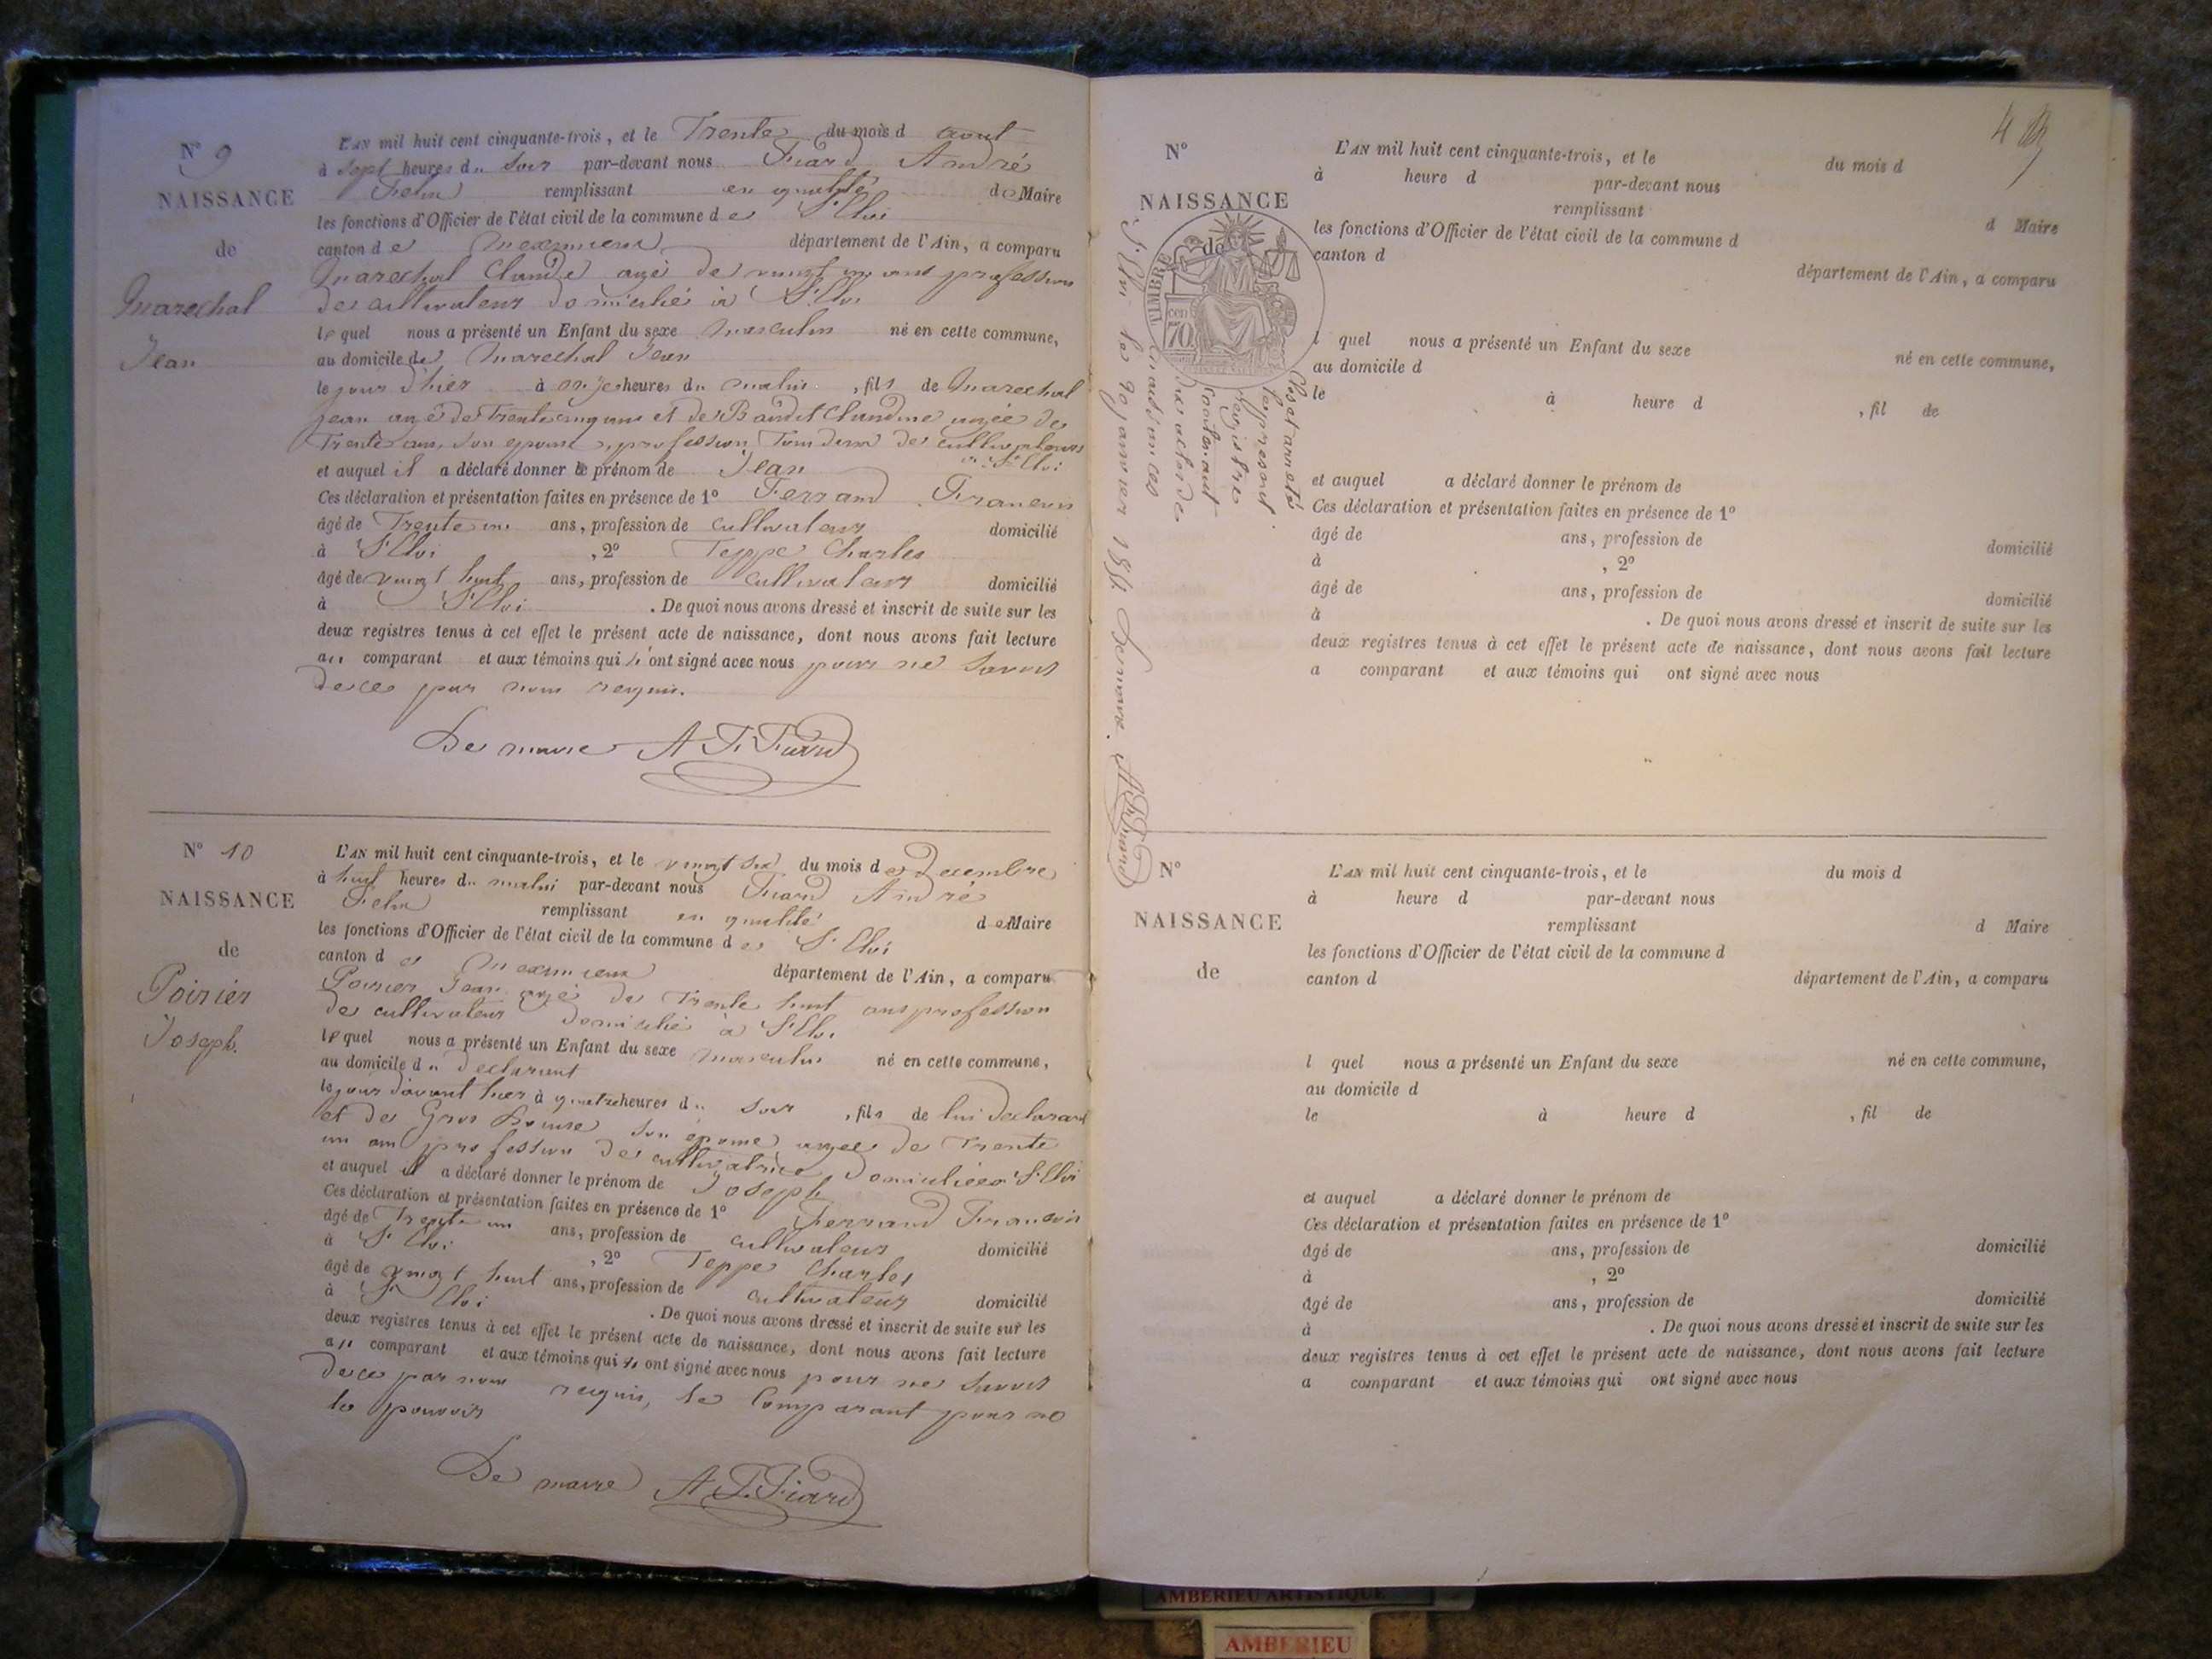 N° 9
NAISSANCE
de
Marechal
Jean
L'AN mil huit cent cinquante-trois, et le Trente du mois d aout
à Sept heures du Soir par-devant nous Fiard André
Felix remplissant en qualité de Maire
les fonctions d'Officier de l'état civil de la commune de St Eloi
canton de Meximieux département de l'Ain, a comparu
Marechal Claude agé de vingt un ans profession
de cultivateur domicilié à St Eloi
lequel nous a présenté un Enfant du sexe masculin né en cette commune,
au domicile de Marechal Jean
le jour d'hier à onze heures du matin, fils de Marechal
Jean agé de Trente cinq ans et de Claudine agée de
Trente ans, son epouse, profession de cultivateurs
à St Eloi
et auquel il a déclaré donner le prénom de Jean
Ces déclaration et présentation faites en présence de 1° Ferrand Francois
âgé de Trente un ans, profession de cultivateur domicilié
à St Eloi, 2° Teppe Charles
âgé de vingt huit ans, profession de cultivateur domicilié
à St Eloi. De quoi nous avons dressé et inscrit de suite sur les
deux registres tenus à cet effet le présent acte de naissance, dont nous avons fait lecture
au comparant et aux témoins qui n'ont signé avec nous pour ne Savoir
de ce par nous requis.
Le maire A F. Fiard
N° 10
NAISSANCE
de
Poirier
Joseph.
L'AN mil huit cent cinquante-trois, et le vingt six du mois de Decembre
à huit heures du matin par-devant nous Fiard André
Felix remplissant en qualité de Maire
les fonctions d'Officier de l'état civil de la commune de St Eloi
canton de Meximieux département de l'Ain, a comparu
Poirier Jean agé de Trente huit ans profession
de cultivateur domicilié à St Eloi
lequel nous a présenté un Enfant du sexe masculin né en cette commune,
au domicile du declarant
le jour d'avant hier à quatre heures du soir, fils de lui declarant
et de Gros Louise son epouse agée de Trente
un ans profession de cultivatrice domiciliée à St Eloi
et auquel il a déclaré donner le prénom de Joseph
Ces déclaration et présentation faites en présence de 1° Ferrand Francois
âgé de Trente un ans, profession de cultivateur domicilié
à St Eloi, 2° Teppe Charles
âgé de vingt huit ans, profession de cultivateur domicilié
à St Eloi. De quoi nous avons dressé et inscrit de suite sur les
deux registres tenus à cet effet le présent acte de naissance, dont nous avons fait lecture
au comparant et aux témoins qui n'ont signé avec nous pour ne Savoir
de ce par nous requis, le Comparant pour ne
le pouvoir
Le maire A F. Fiard
4
N°
NAISSANCE
de
TIMBRE
70 cen
Clos et arreté
le present
registre
contenant
dix actes de
naissances
St Eloi le 20 janvier 1854 Le maire. A F. Fiard
L'AN mil huit cent cinquante-trois, et le du mois d
à heure d par-devant nous
remplissant d Maire
les fonctions d'Officier de l'état civil de la commune d
canton d département de l'Ain, a comparu
l quel nous a présenté un Enfant du sexe né en cette commune,
au domicile d
le à heure d , fil de
et auquel a déclaré donner le prénom de
Ces déclaration et présentation faites en présence de 1°
âgé de ans, profession de domicilié
à , 2°
âgé de ans, profession de domicilié
à . De quoi nous avons dressé et inscrit de suite sur les
deux registres tenus à cet effet le présent acte de naissance, dont nous avons fait lecture
a comparant et aux témoins qui ont signé avec nous
N°
NAISSANCE
de
L'AN mil huit cent cinquante-trois, et le du mois d
à heure d par-devant nous
remplissant d Maire
les fonctions d'Officier de l'état civil de la commune d
canton d département de l'Ain, a comparu
l quel nous a présenté un Enfant du sexe né en cette commune,
au domicile d
le à heure d , fil de
et auquel a déclaré donner le prénom de
Ces déclaration et présentation faites en présence de 1°
âgé de ans, profession de domicilié
à , 2°
âgé de ans, profession de domicilié
à . De quoi nous avons dressé et inscrit de suite sur les
deux registres tenus à cet effet le présent acte de naissance, dont nous avons fait lecture
a comparant et aux témoins qui ont signé avec nous
AMBERIEU ARTISTIQUE
AMBERIEU